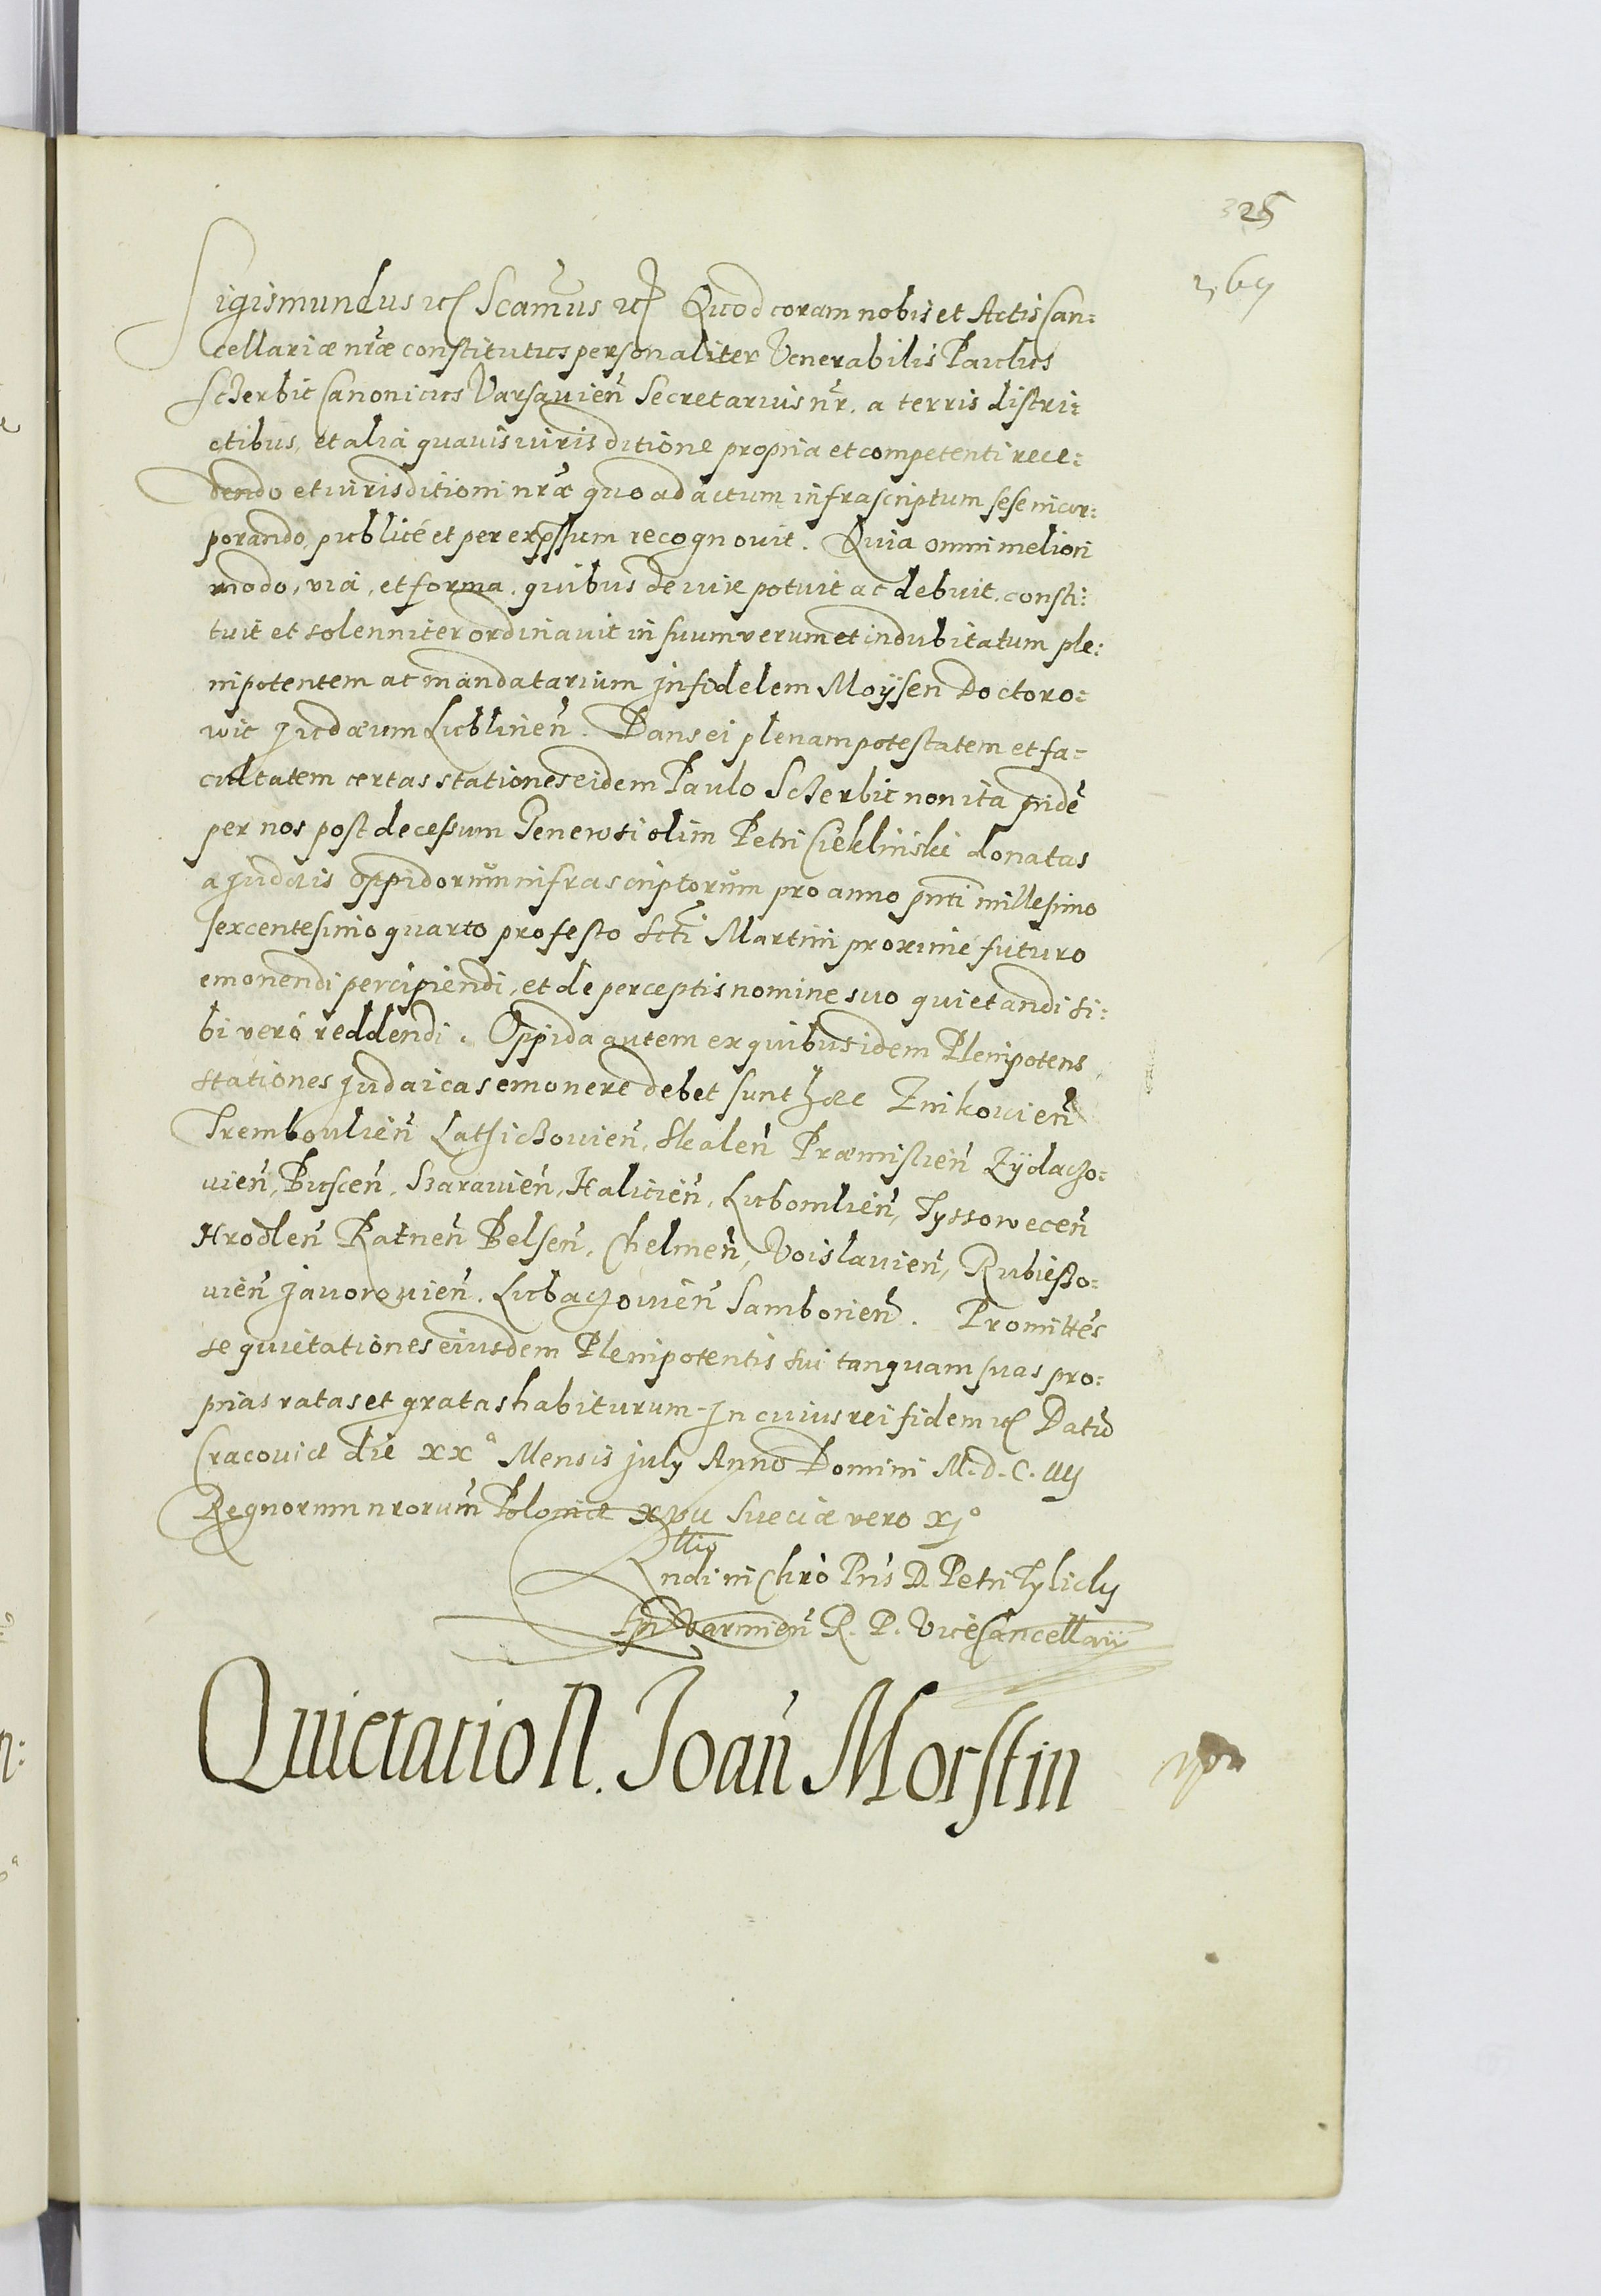 325
269
Sigismundus etc Scamus etc Quod coram nobis et Actis Can:
cellariæ nræ constitutus personaliter Venerabilis Paulus
Sczerbic Canonicus Varsavien Secretarius nr. a terris distri:
ctibus, et alia quavis iurisditione propria et competenti rece:
dendo et iurisditioni nræ quo ad actum infrascriptum sese incor:
porando, publicé et per expssum recognovit. Quia omni meliori
modo, via, et forma. quibus de iure potuit ac debuit. consti:
tuit et solenniter ordinavit in suum verum et indubitatum ple:
nipotentem ac mandatarium jnfidelem Moÿsen Doctoro:
wic judæum Lublinen. Dans ei plenam potestatem et fa=
cultatem certas stationes eidem Paulo Sczerbic non ita pridé
per nos post decessum Generosi olim Petri Ciekliński donatas
a judæis oppidorum infrascriptorum pro anno pnti millesimo
sexcentesimo quarto pro festo Scti Martini proximé futuro
emonendi percipiendi, et de perceptis nomine suo quietandi si:
bi veró reddendi. Oppida autem ex quibus idem Plenipotens
stationes judaicas emonere debet sunt hæc Zinkovien
Trembovlien Lathiczovien, Skalen Præmislien Zÿdaczo:
vien, Buscen, Szaravien, Halicien, Lubomlien, Tyssowecen
Hrodlen Ratnen Belsen, Chelmen, Voislavien, Rubieszo:
vien javorovien. Lubaczovien Samborien. Promittés
se quietationes eiusdem Plenipotentis sui tanquam suas pro:
prias ratas et gratas habiturum. Jn cuius rei fidem etc Datu
Cracoviæ die xxa Mensis july Anno Domini M.d.C.iiij
Regnorum nrorum Poloniæ xvii Sueciæ vero xjo
Rndi in Chro Pris D. Petri Tylicky
Epi Varmien R. P. ViceCancellarii
Quietatio N. Joan Morstin